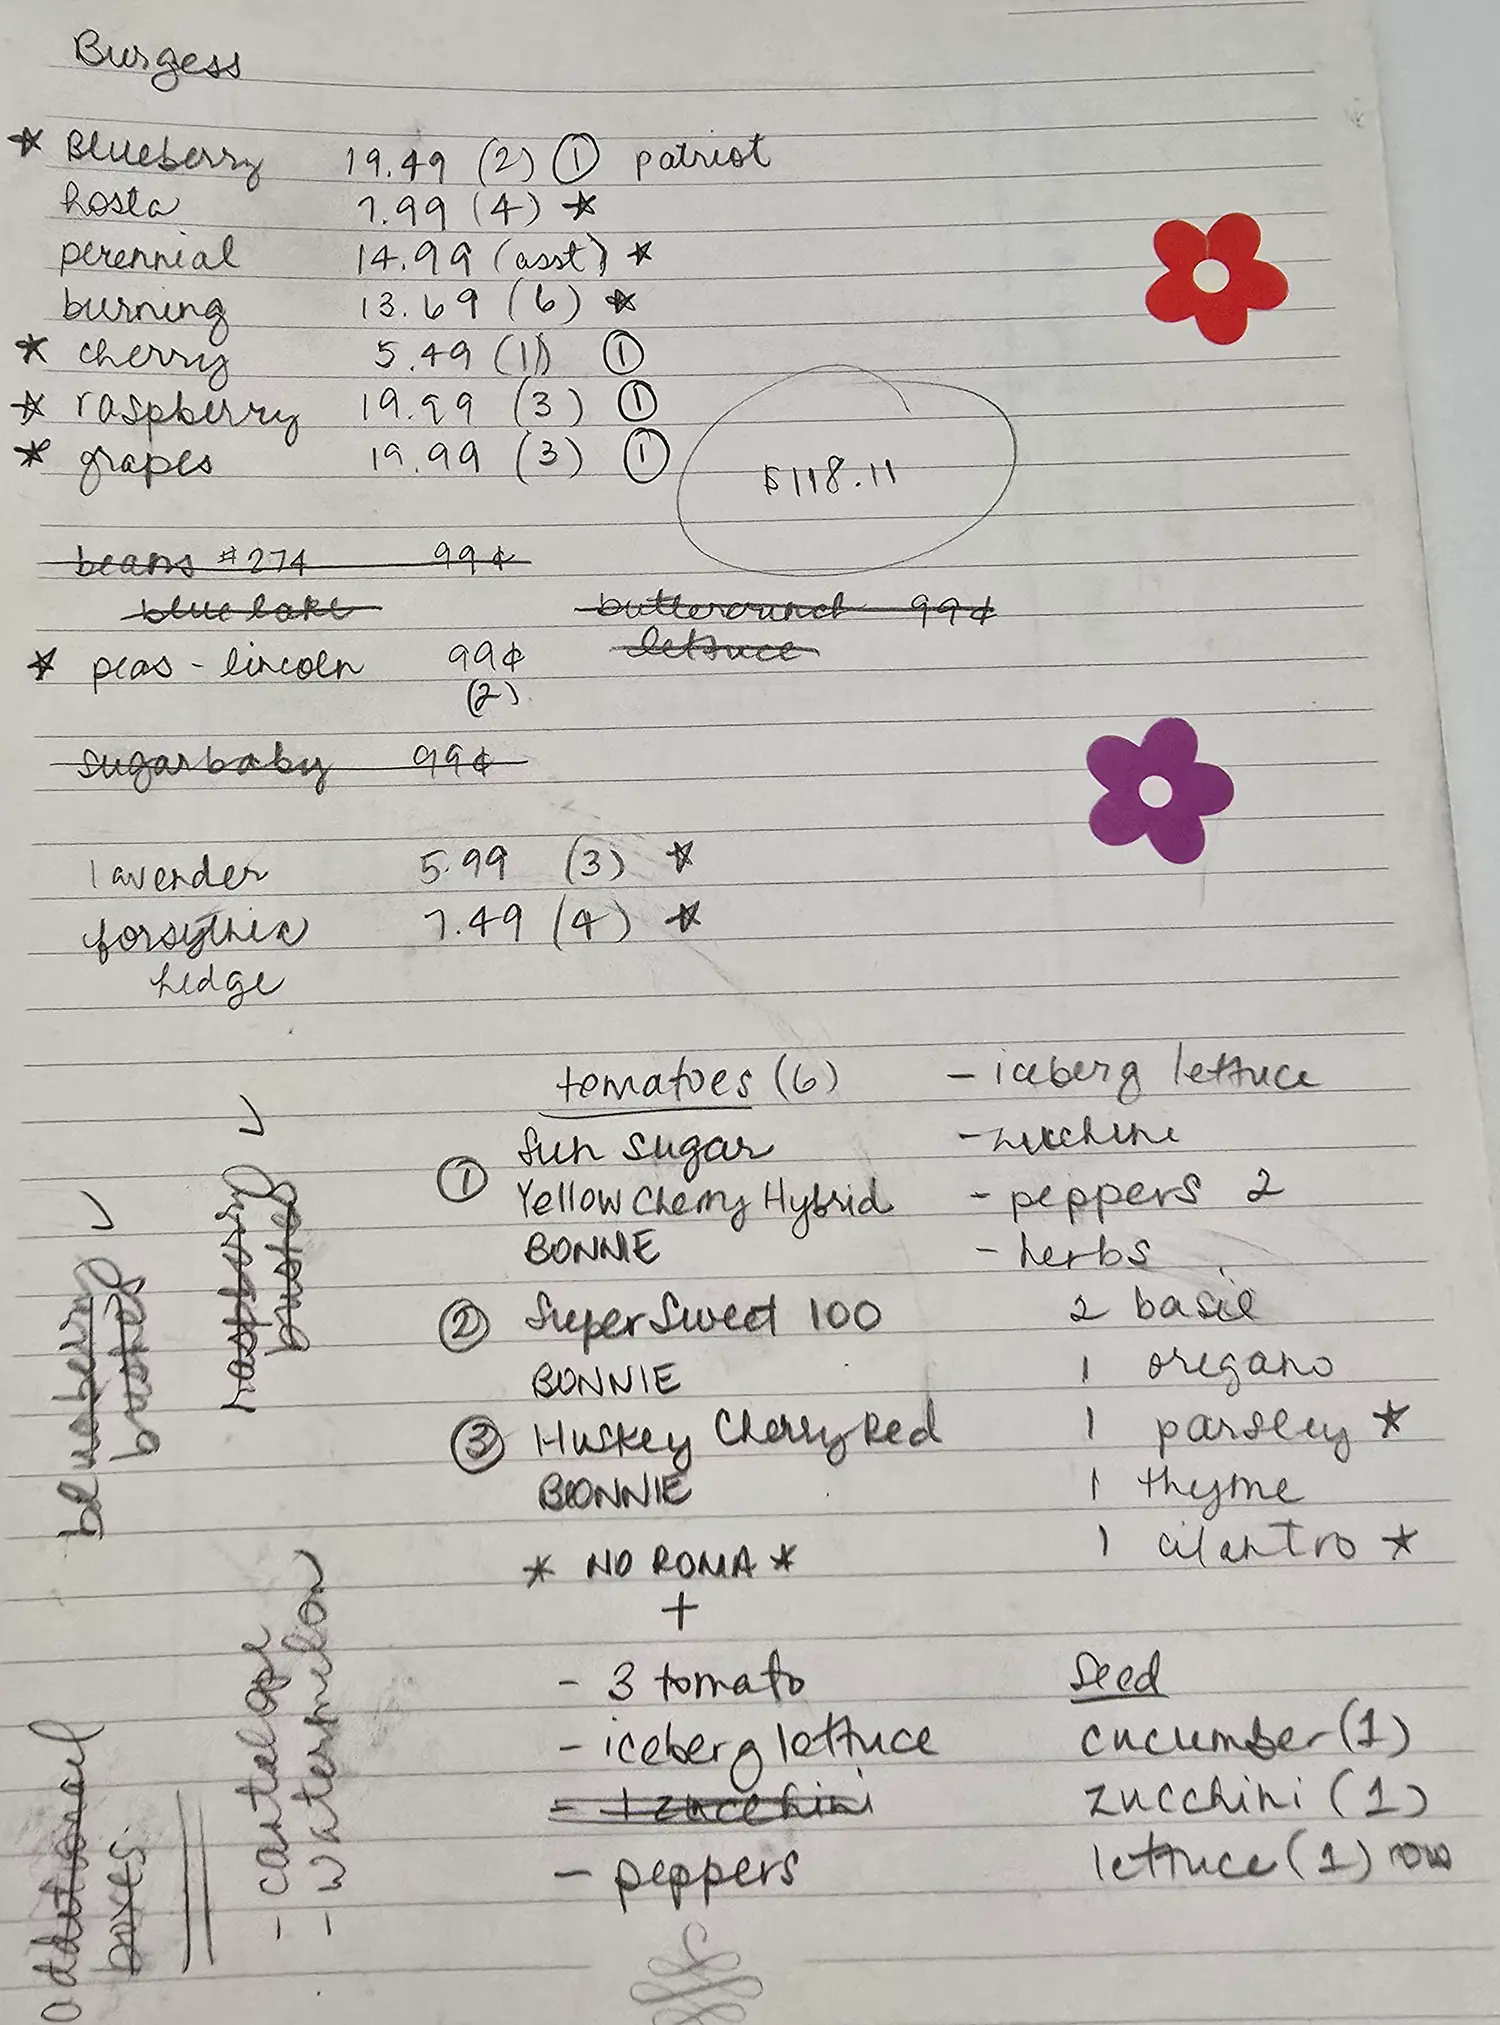 Burgess
★ Blueberry 19.49 (2) ① patriot
hosta 7.99 (4) ★
perennial 14.99 (asst) ★
burning 13.69 (6) ★
★ cherry 5.49 (1) ①
★ raspberry 19.99 (3) ①
★ grapes 19.99 (3) ①
$118.11
beans #274 99¢
blue lake
buttercrunch 99¢
lettuce
★ peas - lincoln 99¢
(2)
sugarbaby 99¢
lavender 5.99 (3) ★
forsythia 7.49 (4) ★
hedge
tomatoes (6)
① Sun Sugar
Yellow Cherry Hybrid
BONNIE
② Super Sweet 100
BONNIE
③ Huskey Cherry Red
BONNIE
★ NO ROMA ★
+
- 3 tomato
- iceberg lettuce
- 1 zucchini
- peppers
- iceberg lettuce
- zucchini
- peppers 2
- herbs
2 basil
1 oregano
1 parsley ★
1 thyme
1 cilantro ★
Seed
cucumber (1)
zucchini (1)
lettuce (1) row
blueberry ✓
bushes
raspberry ✓
bushes
additional
boxes
- cantelope
- watermelon